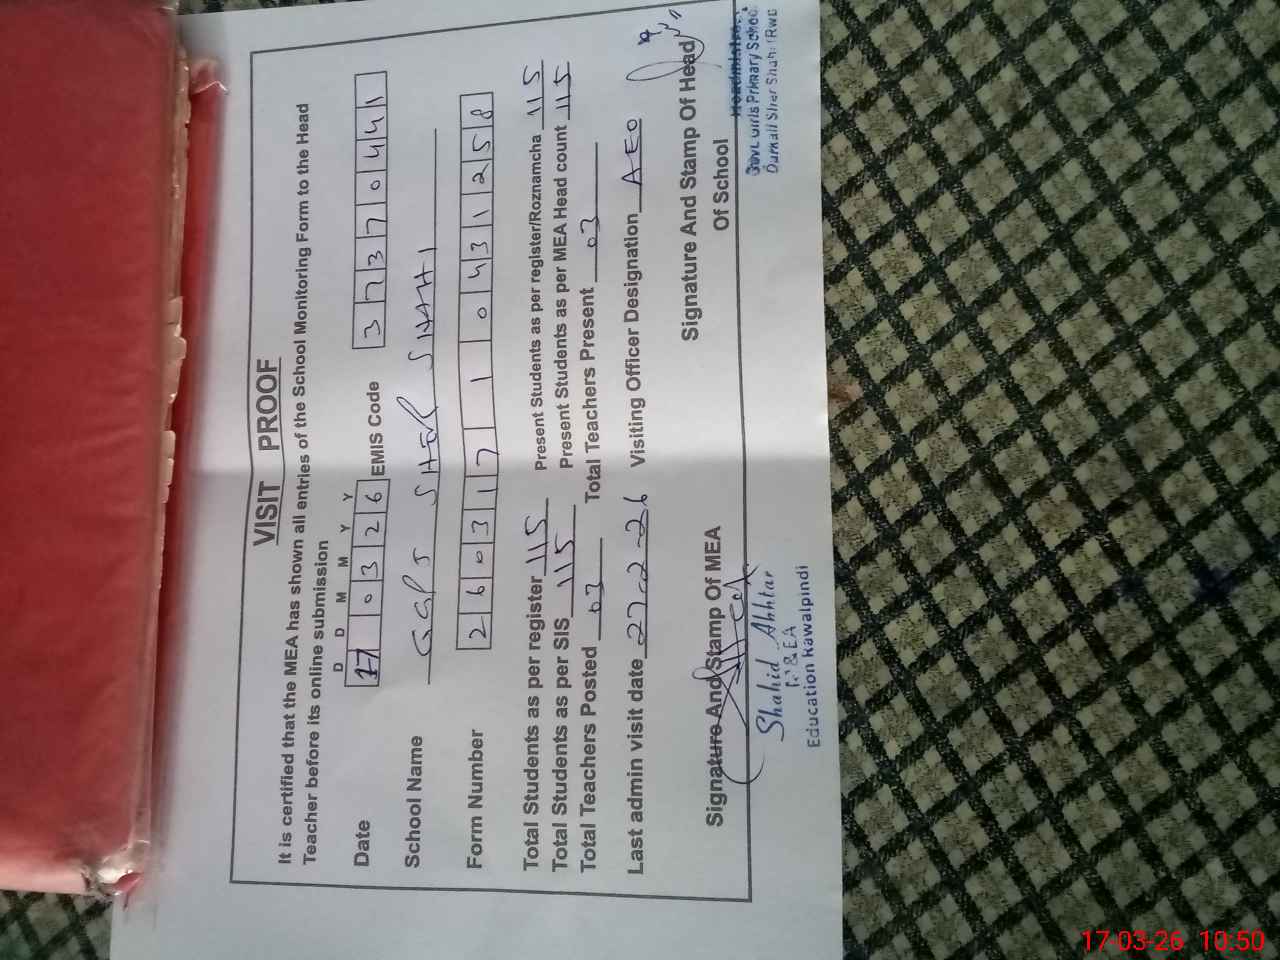 VISIT PROOF
It is certified that the MEA has shown all entries of the School Monitoring Form to the Head
Teacher before its online submission
D D M M Y Y
Date 17 0 3 2 6 EMIS Code 3 7 3 7 0 4 4 1
School Name GGPS SHER SHAHI
Form Number 2 6 0 3 1 7 1 0 4 3 1 2 5 8
Total Students as per register 115 Present Students as per register/Roznamcha 115
Total Students as per SIS 115 Present Students as per MEA Head count 115
Total Teachers Posted 03 Total Teachers Present 03
Last admin visit date 27-2-26 Visiting Officer Designation AEO
Signature And Stamp Of MEA Signature And Stamp Of Head
Of School
Shahid Akhtar
M&EA
Education Rawalpindi
Headmistress
Govt. Girls Primary School
Sher Shahi (Rwp
17-03-26 10:50